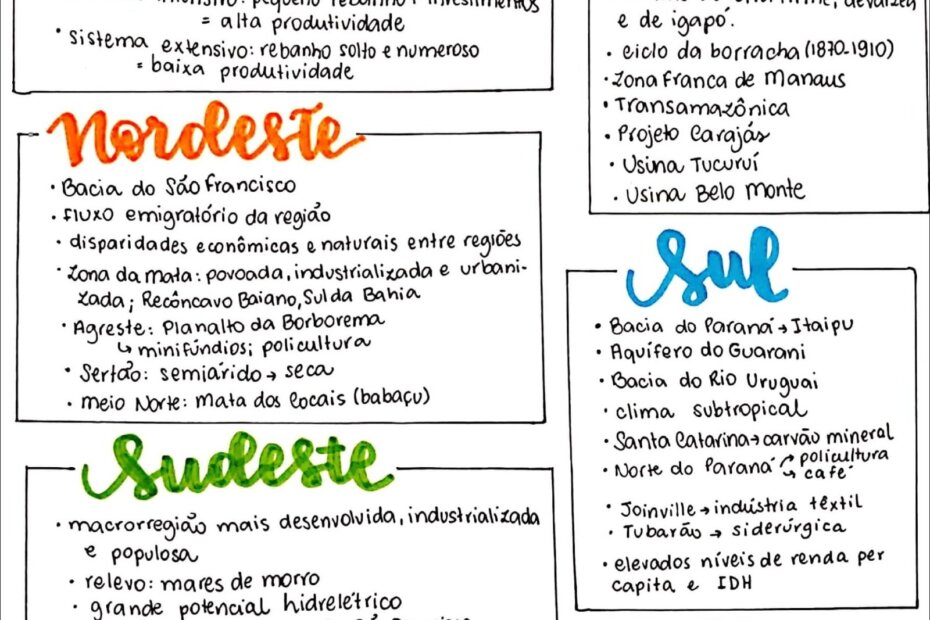 = alta produtividade
• sistema extensivo: rebanho solto e numeroso
= baixa produtividade
Nordeste
• Bacia do São Francisco
• fluxo emigratório da região
• disparidades econômicas e naturais entre regiões
• Zona da mata: povoada, industrializada e urbani-
zada; Recôncavo Baiano, Sul da Bahia
• Agreste: Planalto da Borborema
↳ minifúndios; policultura
• Sertão: semiárido → seca
• meio Norte: mata dos cocais (babaçu)
Sudeste
• macrorregião mais desenvolvida, industrializada
e populosa
• relevo: mares de morro
• grande potencial hidrelétrico
e de igapó.
• ciclo da borracha (1870-1910)
• Zona Franca de Manaus
• Transamazônica
• Projeto Carajás
• Usina Tucuruí
• Usina Belo Monte
Sul
• Bacia do Paraná → Itaipu
• Aquífero do Guarani
• Bacia do Rio Uruguai
• clima subtropical
• Santa Catarina → carvão mineral
• Norte do Paraná → policultura
→ café
• Joinville → indústria têxtil
• Tubarão → siderúrgica
• elevados níveis de renda per
capita e IDH